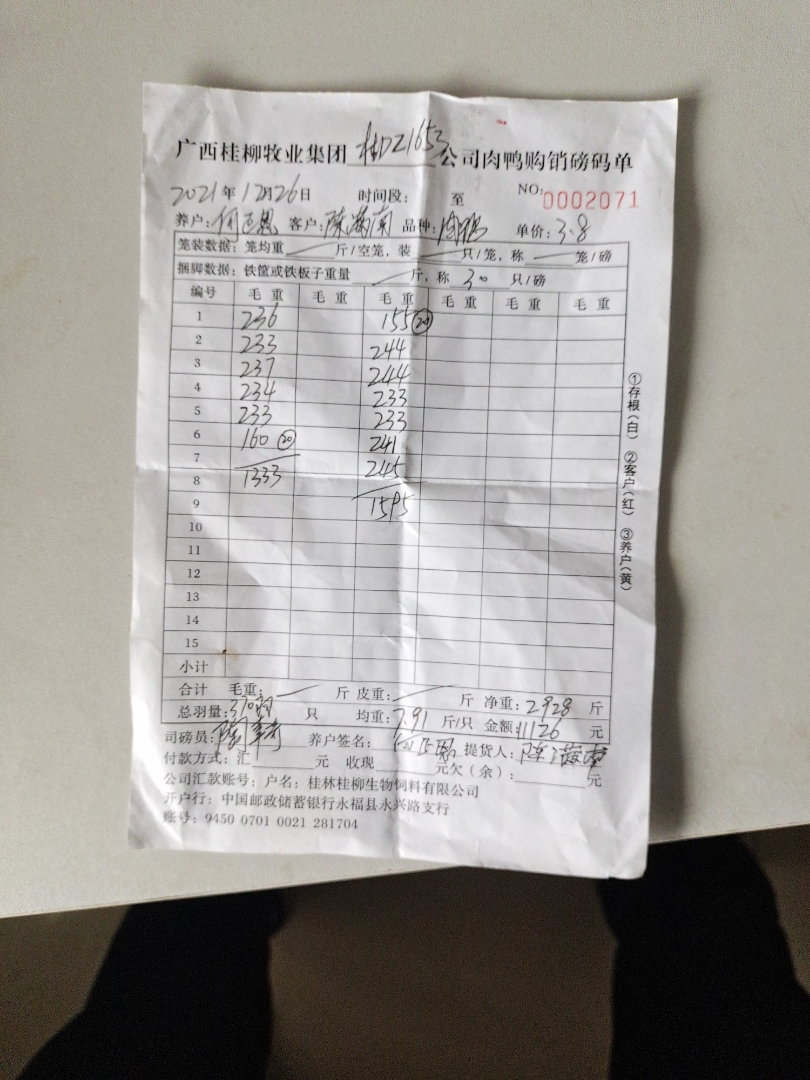 广西桂柳牧业集团 桂DZ1653 公司肉鸭购销磅码单
2021年12月26日 时间段: 至 NO:0002071
养户: 客户:陈海南 品种:肉鸭 单价:3.8
笼装数据:笼均重 斤/空笼,装 只/笼,称 笼/磅
捆脚数据:铁筐或铁板子重量 斤,称 30 只/磅
编号 毛重 毛重 毛重 毛重 毛重 毛重
1 236 155 (20)
2 233 244
3 237 244
4 234 233
5 233 233
6 160 (20) 241
7 245
8 1333
9 1595
10
11
12
13
14
15
小计
合计 毛重: 斤 皮重: 斤 净重:2928 斤
总羽量:370羽 只 均重:7.91 斤/只 金额:11126 元
司磅员: 养户签名: 提货人:陈海南
付款方式:汇 元 收现 元欠(余): 元
公司汇款账号:户名:桂林桂柳生物饲料有限公司
开户行:中国邮政储蓄银行永福县永兴路支行
账号:9450 0701 0021 281704
①存根(白) ②客户(红) ③养户(黄)